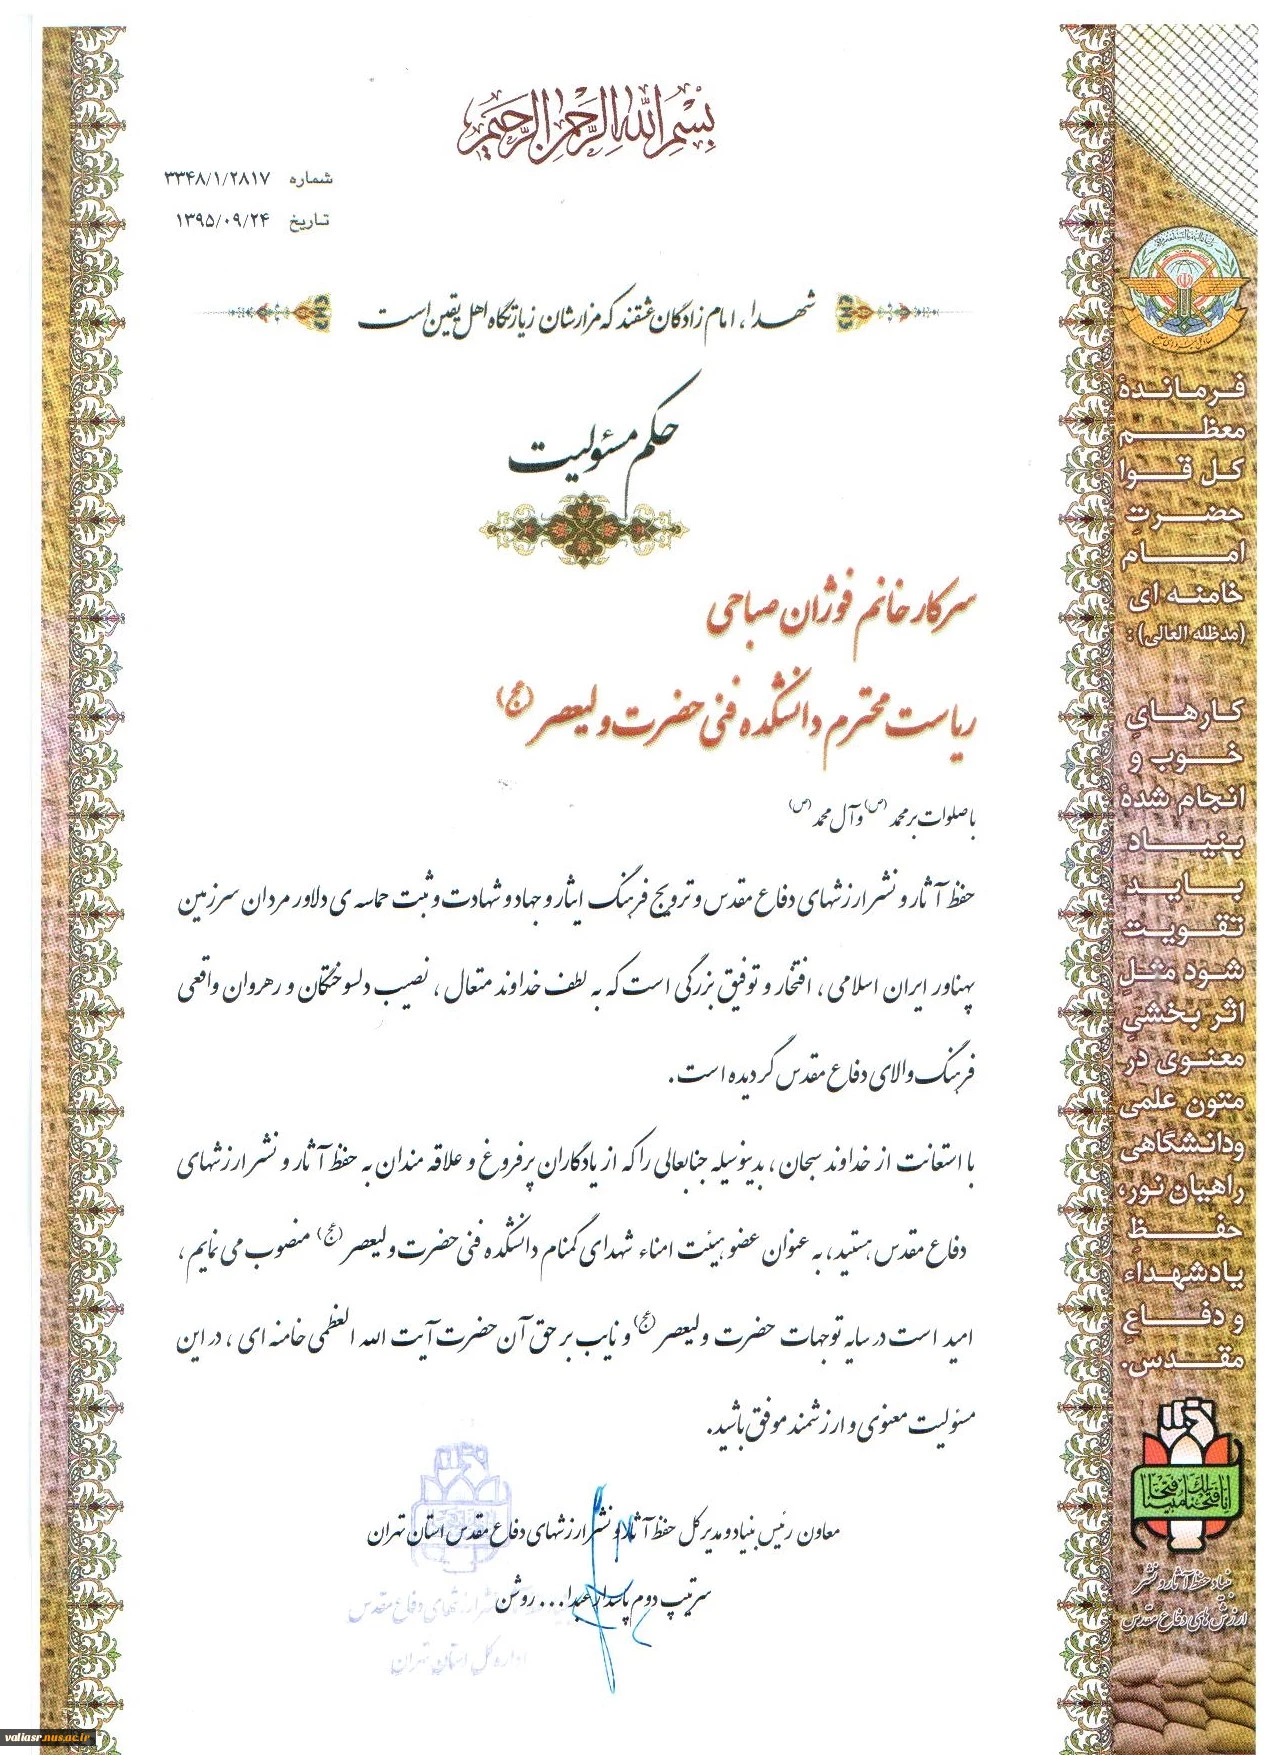 بسم الله الرحمن الرحیم
شماره ۳۳۴۸/۱/۲۸۱۷
تاریخ ۱۳۹۵/۰۹/۲۴
شهدا، امام زادگان عشقند که مزارشان زیارتگاه اهل یقین است
حکم مسئولیت
سرکار خانم فوژان صباحی
ریاست محترم دانشکده فنی حضرت ولیعصر (عج)
با صلوات بر محمد (ص) و آل محمد (ص)
حفظ آثار و نشر ارزشهای دفاع مقدس و ترویج فرهنگ ایثار و جهاد و شهادت و ثبت حماسه ی دلاور مردان سرزمین
پهناور ایران اسلامی، افتخار و توفیق بزرگی است که به لطف خداوند متعال، نصیب دلسوختگان و رهروان واقعی
فرهنگ والای دفاع مقدس گردیده است.
با استعانت از خداوند سبحان، بدینوسیله جنابعالی را که از یادگاران پرفروغ و علاقه مندان به حفظ آثار و نشر ارزشهای
دفاع مقدس هستید، به عنوان عضو هیئت امناء شهدای گمنام دانشکده فنی حضرت ولیعصر (عج) منصوب می نمایم،
امید است در سایه توجهات حضرت ولیعصر (عج) و نایب بر حق آن حضرت آیت الله العظمی خامنه ای، در این
مسئولیت معنوی و ارزشمند موفق باشید.
معاون رئیس بنیاد و مدیرکل حفظ آثار و نشر ارزشهای دفاع مقدس استان تهران
سرتیپ دوم پاسدار عبدا... روشن
نشر ارزشهای دفاع مقدس
اداره کل استان تهران
فرماندهٔ
معظم
کل قوا
حضرتِ
امام
خامنه ای
(مدظله العالی):
کارهایِ
خوب و
انجام شدهٔ
بنیاد
باید
تقویت
شود مثلِ
اثر بخشیِ
معنوی در
متون علمی
ودانشگاهی
راهیان نور،
حفظِ
یادشهداء
و دفاعِ
مقدس.
انا فتحنا لک فتحا مبینا
بنیاد حفظ آثار و نشر
ارزش های دفاع مقدس
valiasr.nus.ac.ir